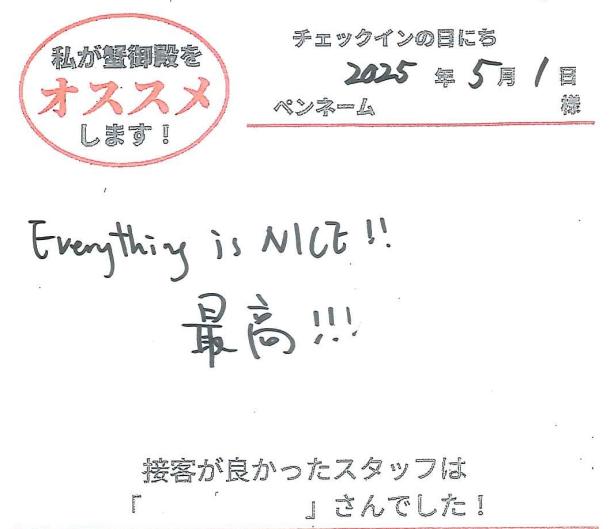 私が蟹御殿を
オススメ
します！
チェックインの日にち
2025 年 5月 1日
ペンネーム 様
Everything is NICE!!
最高!!!
接客が良かったスタッフは
「 」さんでした！